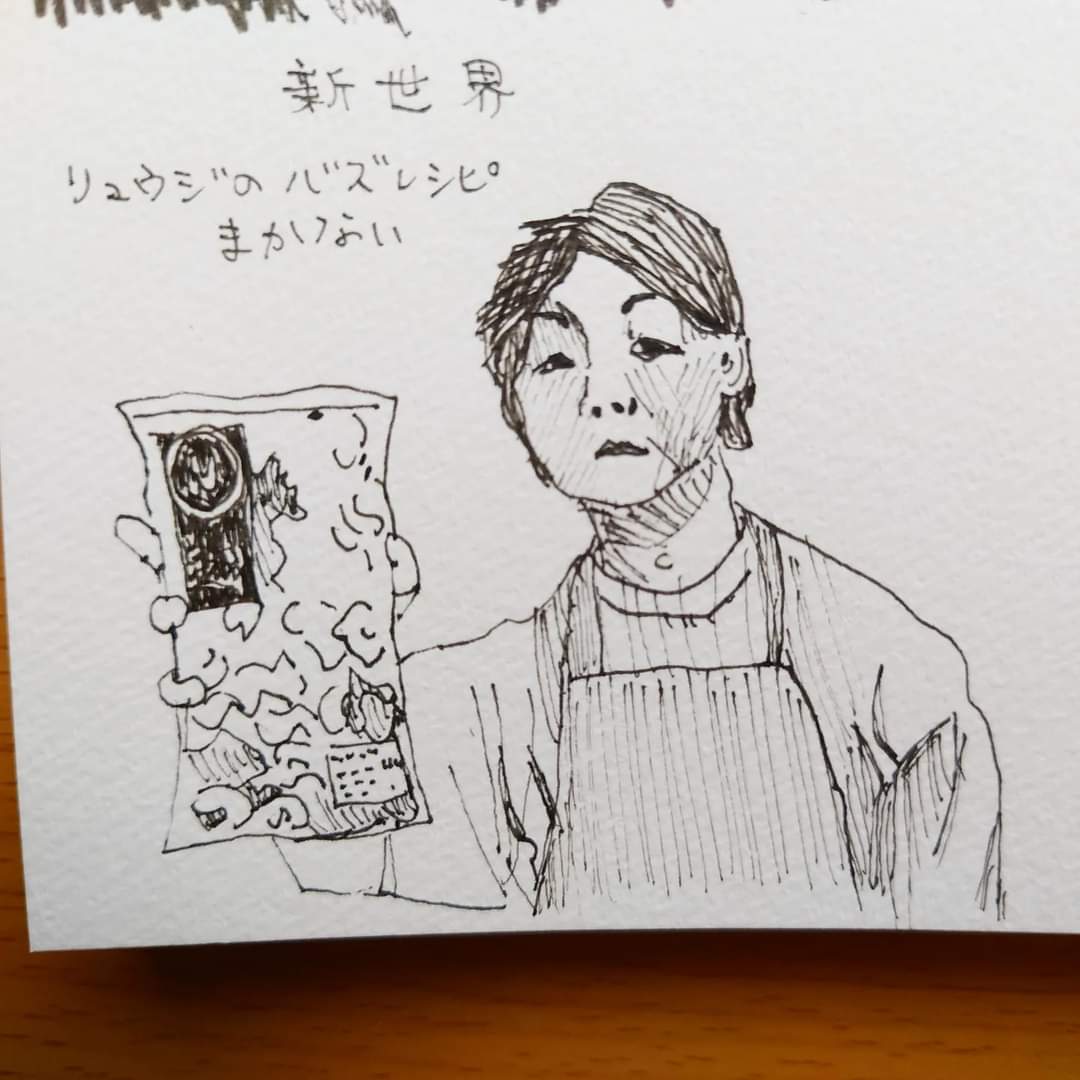 新世界
リュウジのバズレシピ
まかいない